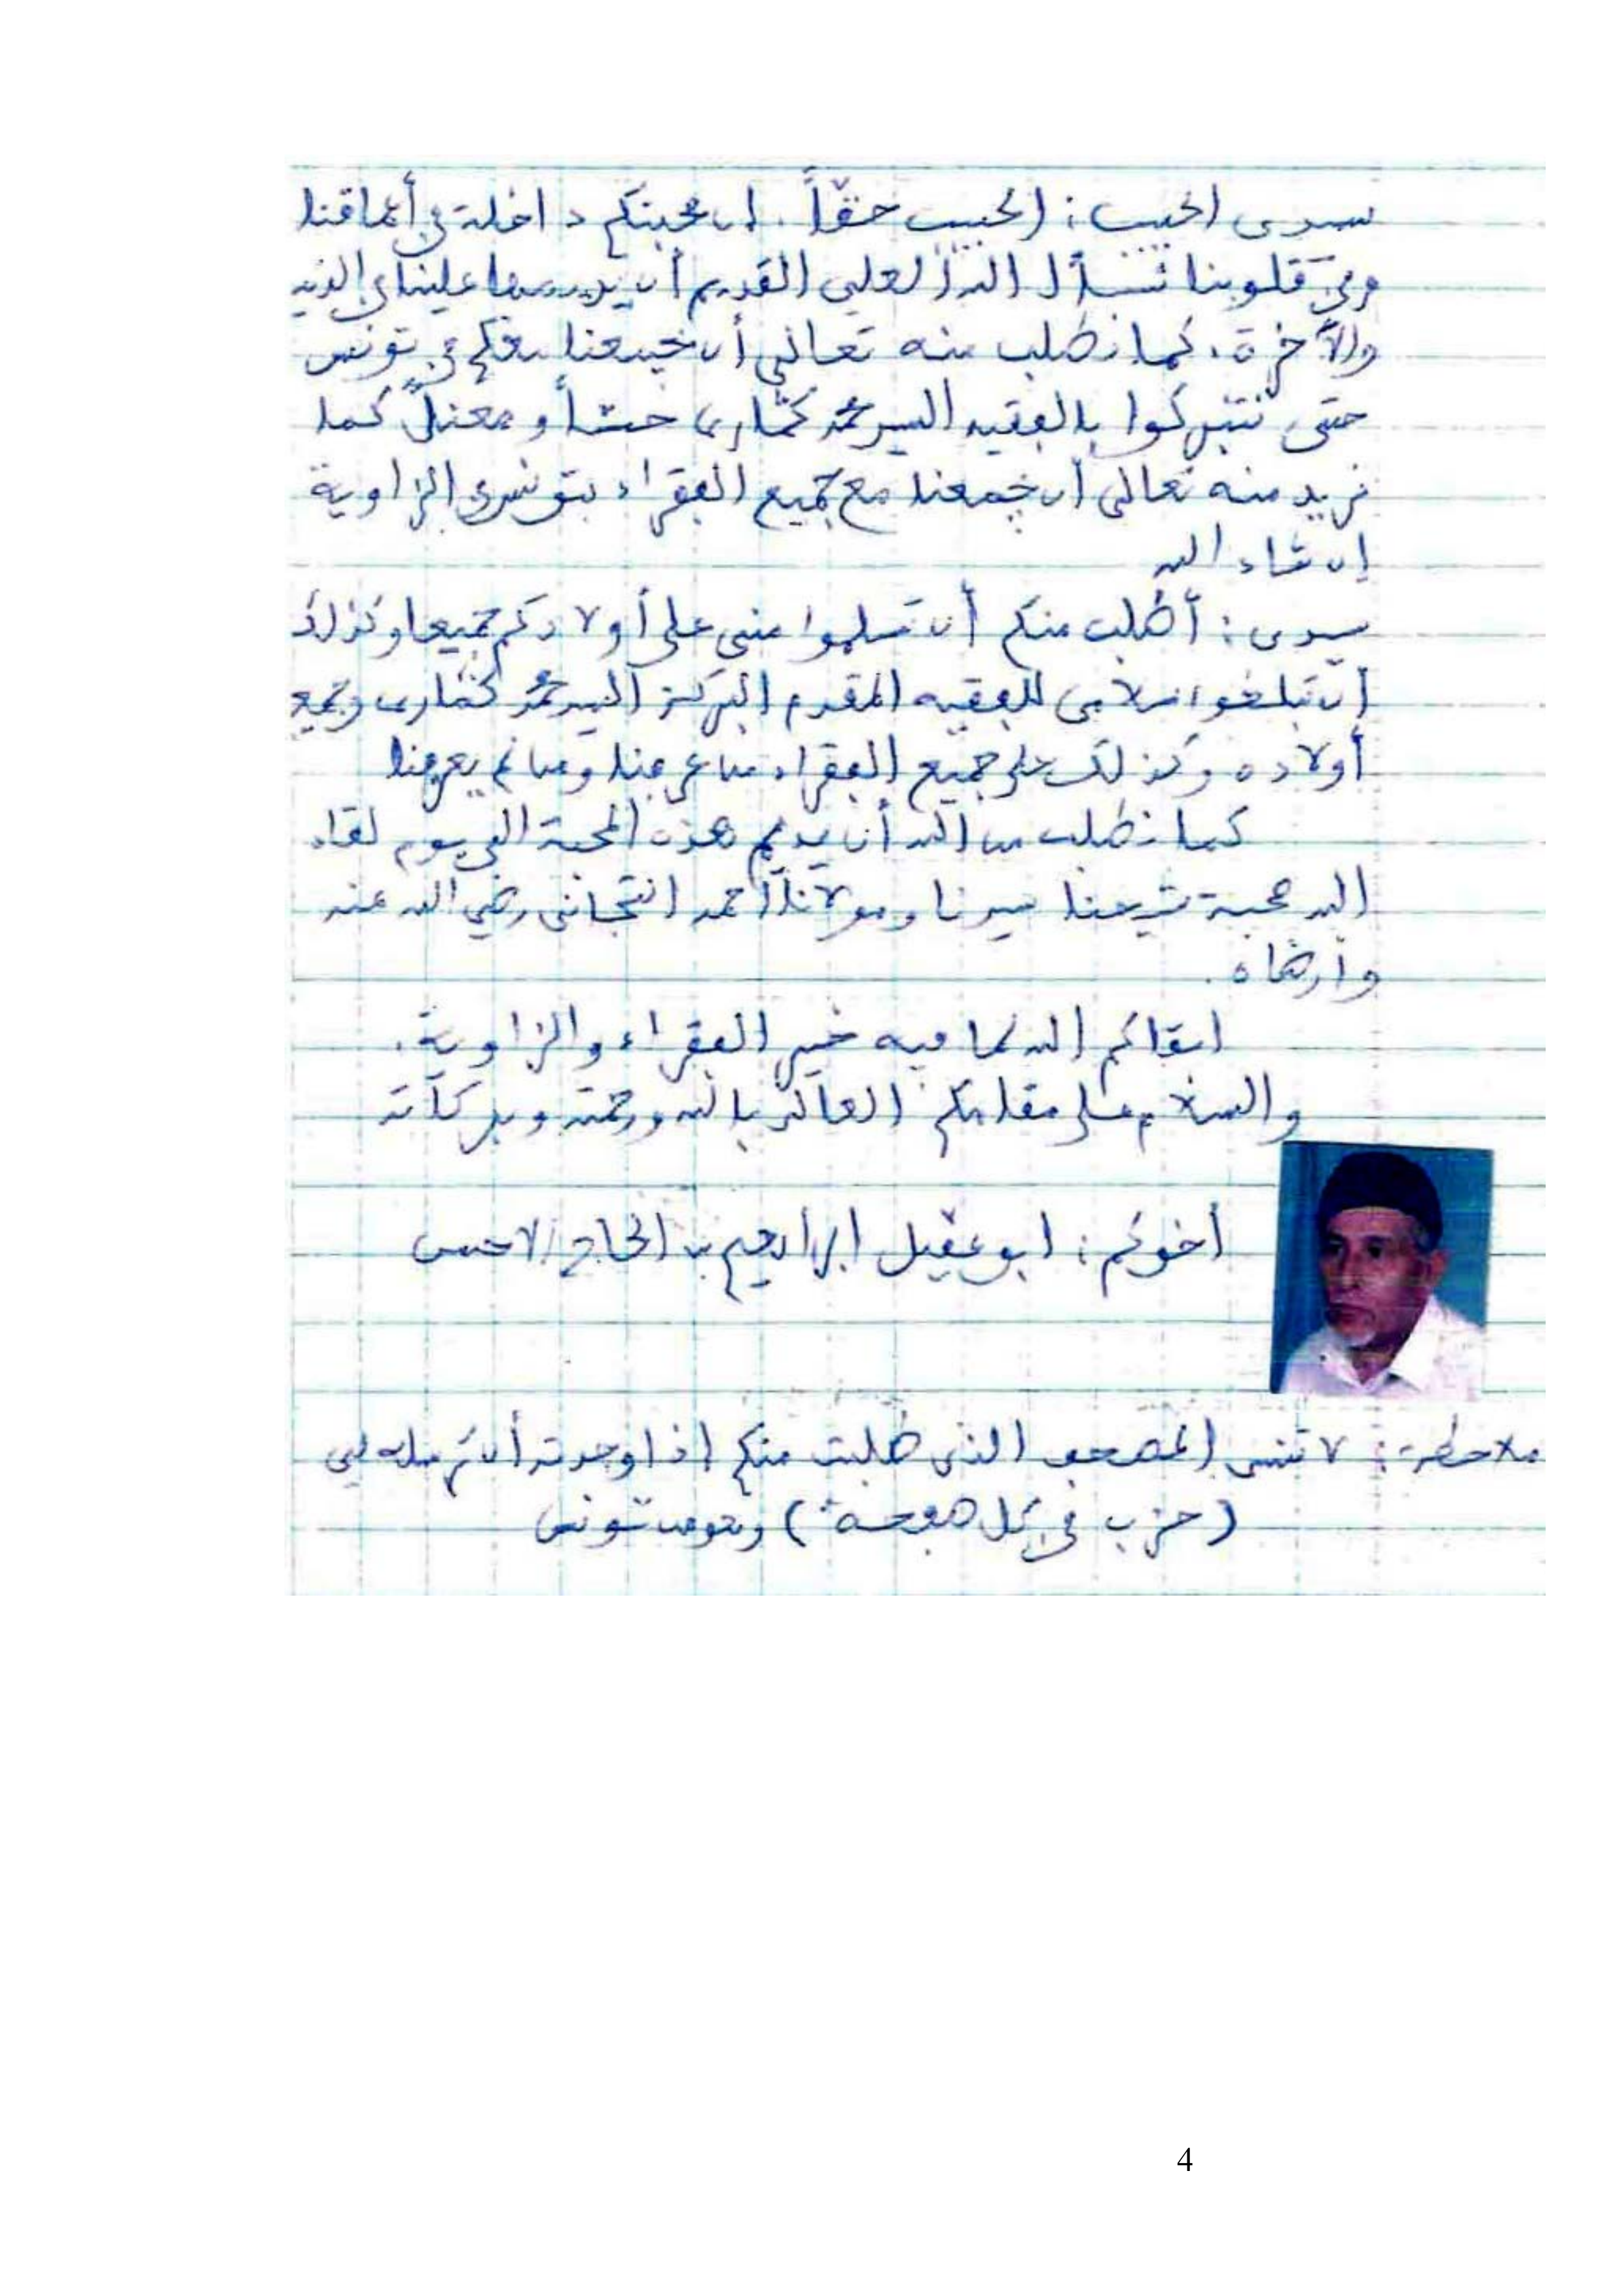 سيدى الحبيب: الحبيب حقّاً. إن محبتكم داخلة في أعماقنا
وفي قلوبنا نسأل الله العلي القديم أن يديمها علينا في الدنيا
والآخرة، كما نطلب منه تعالى أن يجمعنا معكم في تونس
حتى نتبركوا بالفقيه السيد محمد كمّارى حسّاً و معنىً كما
نريد منه تعالى أن يجمعنا مع جميع الفقراء بتونس في الزاوية
إن شاء الله
سيدى: أطلب منكم أن تسلموا منى على أولادكم جميعا وكذلك
أن تبلغوا سلامى للفقيه المقدم البركة السيد محمد كمّارى وجميع
أولاده وكذلك على جميع الفقراء من عرفنا ومن لم يعرفنا
كما نطلب من الله أن يديم هذه المحبة الى يوم لقاء
الله محبة شيخنا سيدنا ومولانا أحمد التجانى رضي الله عنه
وأرضاه.
ابقاكم الله لما فيه خير الفقراء والزاوية.
والسلام على مقامكم العالى بالله ورحمته وبركاته
أخوكم: ابو عقيل ابراهيم بن الحاج لاحسن
ملاحظة: لا تنسى المصحف الذى طلبت منكم إذا وجدته أن ترسله لى
(حزب في كل صفحة) وهو من تونس
4